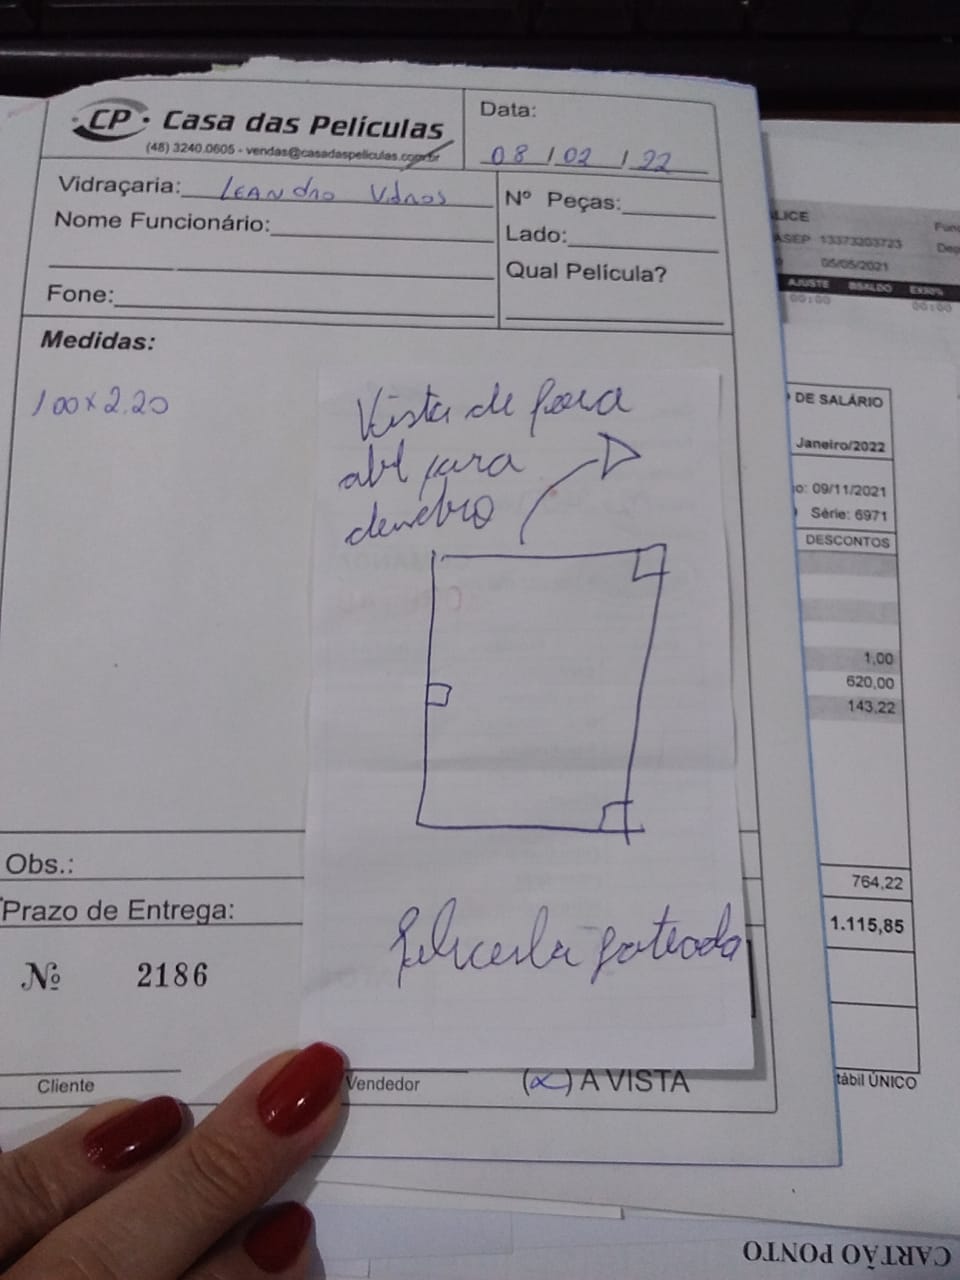 CP Casa das Películas
(48) 3240.0605 - vendas@casadaspeliculas.com.br
Data:
08 / 02 / 22
Vidraçaria: Leandro Vidros
Nome Funcionário:
Fone:
Nº Peças:
Lado:
Qual Película?
Medidas:
100 x 2.20
Vista de fora
abre para
dentro
Película jateada
Obs.:
Prazo de Entrega:
Nº 2186
Cliente
Vendedor
(x) A VISTA
LICE
ASEP 13373203723
05/05/2021
AJUSTE BSALDO
00:00 00:00
DE SALÁRIO
Janeiro/2022
o: 09/11/2021
Série: 6971
DESCONTOS
1,00
620,00
143,22
764,22
1.115,85
tábil ÚNICO
CARTÃO PONTO